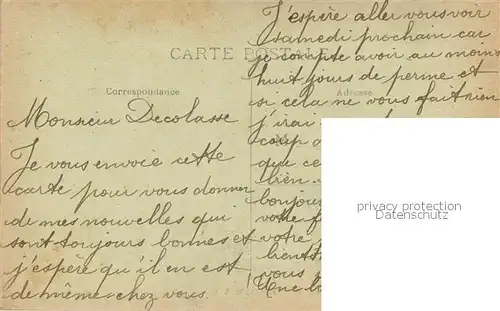 CARTE POSTALE
Correspondance
Adresse
Monsieur Decolasse
Je vous envoie cette
carte pour vous donner
de mes nouvelles qui
sont toujours bonnes et
j'espère qu'il en est
de même chez vous.
J'espère aller vous voir
samedi prochain car
je compte avoir au moins
huit jours de perme et
si cela ne vous fait rien
j'irai
coup d
que ce
bien.
bonjour
votre f
votre
bientôt
vous
Une
privacy protection
Datenschutz